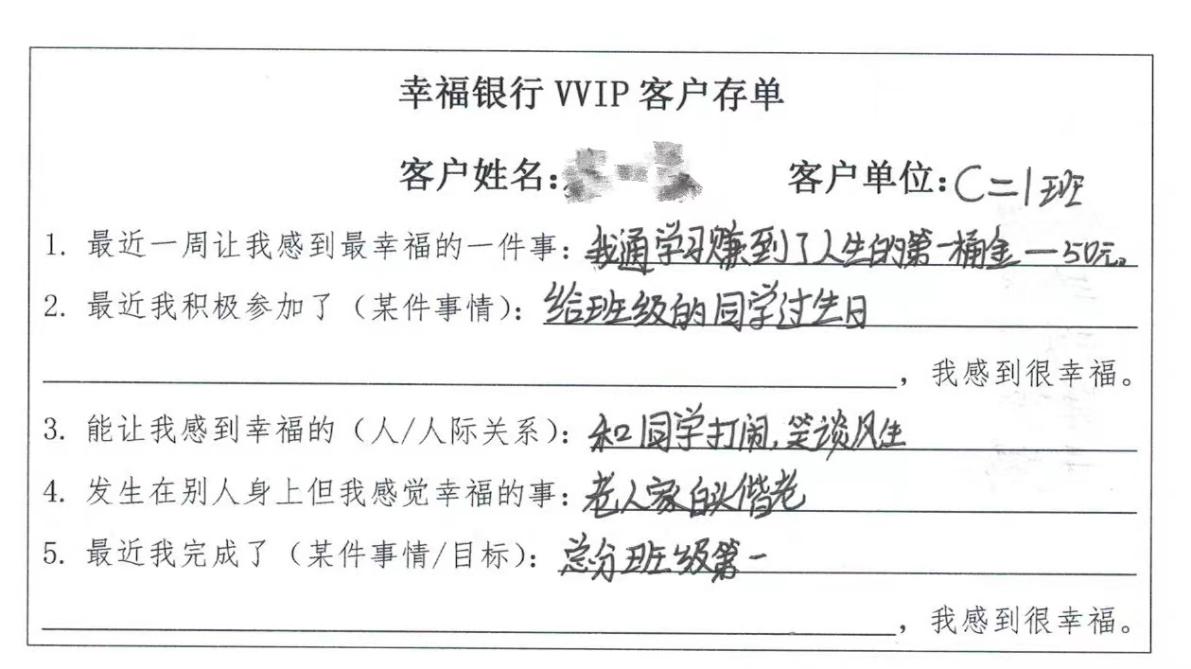 幸福银行 VVIP 客户存单
客户姓名: 客户单位:C二1班
1. 最近一周让我感到最幸福的一件事:我通学习赚到了人生的第一桶金—50元。
2. 最近我积极参加了(某件事情):给班级的同学过生日
,我感到很幸福。
3. 能让我感到幸福的(人/人际关系):和同学打闹,笑谈风生
4. 发生在别人身上但我感觉幸福的事:老人家白头偕老
5. 最近我完成了(某件事情/目标):总分班级第一
,我感到很幸福。